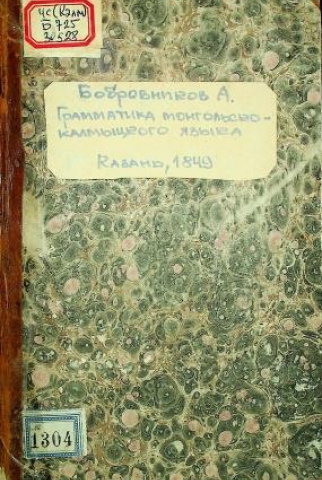 чс(Калм)
Б 725
30588
Бобровников А.
Грамматика монгольско-
калмыцкого языка
Казань, 1849
1304